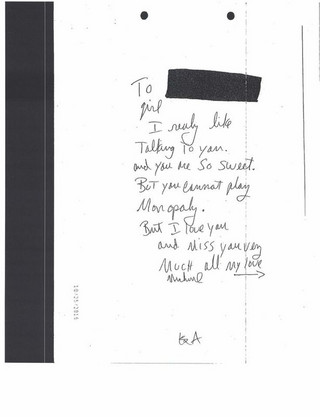 To
girl
I really like
Talking To you.
and you are So Sweet.
But you cannot play
Monopoly.
But I love you
and Miss you very
Much all my love
10-25-2015